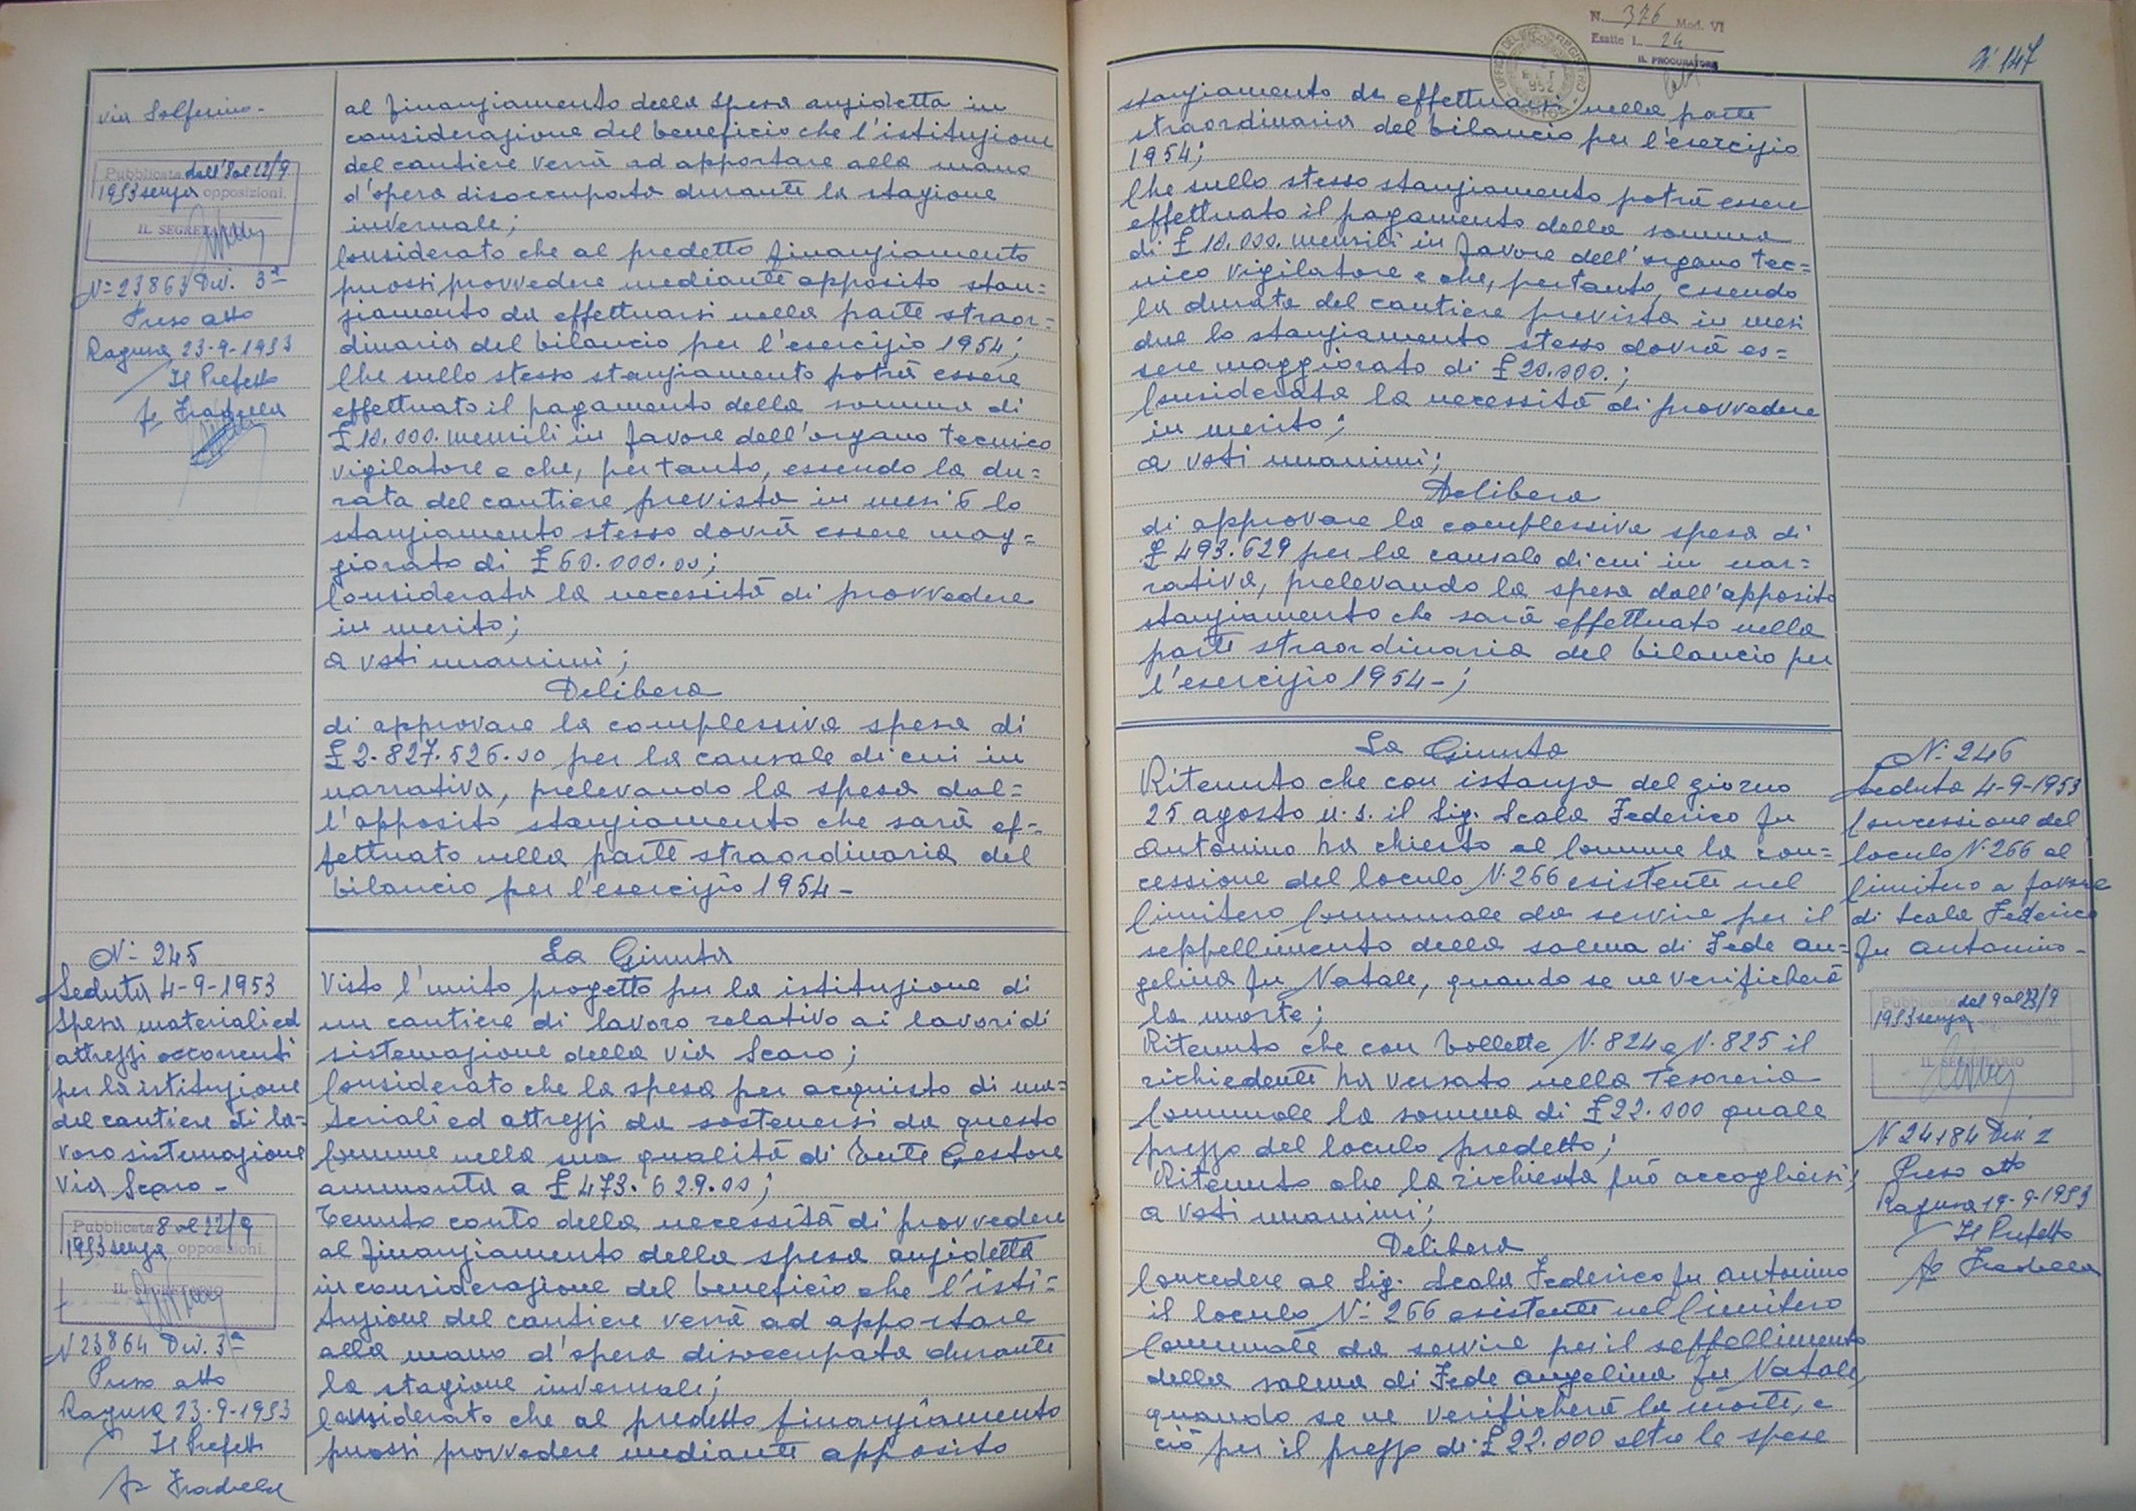 via Solferino-
Pubblicata dall'8 al 12/9
1953 senza opposizioni.
IL SEGRETARIO
N= 23863 Div. 3ª
Preso atto
Ragusa 23-9-1953
Il Prefetto
al finanziamento della spesa anzidetta in
considerazione del beneficio che l'istituzione
del cantiere verrà ad apportare alla mano
d'opera disoccupata durante la stagione
invernale;
Considerato che al predetto finanziamento
puossi provvedere mediante apposito stan=
ziamento da effettuarsi nella parte straor=
dinaria del bilancio per l'esercizio 1954;
Che sullo stesso stanziamento potrà essere
effettuato il pagamento della somma di
£ 10.000. mensili in favore dell'organo tecnico
vigilatore e che, pertanto, essendo la du=
rata del cantiere prevista in mesi 6 lo
stanziamento stesso dovrà essere mag=
giorato di £ 60.000.00;
Considerata la necessità di provvedere
in merito;
a voti unanimi;
Delibera
di approvare la complessiva spesa di
£ 2.827.526.00 per la causale di cui in
narrativa, prelevando la spesa dal=
l'apposito stanziamento che sarà ef=
fettuato nella parte straordinaria del
bilancio per l'esercizio 1954-
N= 245
Seduta 4-9-1953
Spesa materiali ed
attrezzi occorrenti
per la istituzione
del cantiere di la=
voro sistemazione
via Scaro-
Pubblicata 8 al 12/9
1953 senza opposizioni.
IL SEGRETARIO
N 23864 Div. 3ª
Preso atto
Ragusa 23-9-1953
Il Prefetto
La Giunta
Visto l'unito progetto per la istituzione di
un cantiere di lavoro relativo ai lavori di
sistemazione della via Scaro;
Considerato che la spesa per acquisto di ma=
teriali ed attrezzi da sostenersi da questo
Comune nella sua qualità di Ente Gestore
ammonta a £ 473.629.00;
Tenuto conto della necessità di provvedere
al finanziamento della spesa anzidetta
in considerazione del beneficio che l'isti=
tuzione del cantiere verrà ad apportare
alla mano d'opera disoccupata durante
la stagione invernale;
Considerato che al predetto finanziamento
puossi provvedere mediante apposito
N. 376 Mod. VI
Esatte L. 24
IL PROCURATORE
N. 147
stanziamento da effettuarsi nella parte
straordinaria del bilancio per l'esercizio
1954;
Che sullo stesso stanziamento potrà essere
effettuato il pagamento della somma
di £ 10.000. mensili in favore dell'organo tec=
nico vigilatore e che, pertanto, essendo
la durata del cantiere prevista in mesi
due lo stanziamento stesso dovrà es=
sere maggiorato di £ 20.000.;
Considerata la necessità di provvedere
in merito;
a voti unanimi;
Delibera
di approvare la complessiva spesa di
£ 493.629 per la causale di cui in nar=
rativa, prelevando la spesa dall'apposito
stanziamento che sarà effettuato nella
parte straordinaria del bilancio per
l'esercizio 1954-;
La Giunta
Ritenuto che con istanza del giorno
25 agosto u.s. il Sig. Scala Federico fu
Antonino ha chiesto al Comune la con=
cessione del loculo N. 266 esistente nel
Cimitero Comunale da servire per il
seppellimento della salma di Fede An=
gelina fu Natale, quando se ne verificherà
la morte;
Ritenuto che con bollette N. 824 e N. 825 il
richiedente ha versato nella Tesoreria
Comunale la somma di £ 22.000 quale
prezzo del loculo predetto;
Ritenuto che la richiesta può accogliersi;
a voti unanimi;
Delibera
Concedere al Sig. Scala Federico fu Antonino
il loculo N= 266 esistente nel Cimitero
Comunale da servire per il seppellimento
della salma di Fede Angelina fu Natale,
quando se ne verificherà la morte, e
ciò per il prezzo di £ 22.000 oltre le spese
N= 246
Seduta 4-9-1953
Concessione del
loculo N. 266 al
Cimitero a favore
di Scala Federico
fu Antonino-
Pubblicata del 9 al 23/9
1953 senza opposizioni.
IL SEGRETARIO
N 24184 Div 2
Preso atto
Ragusa 19-9-1953
Il Prefetto